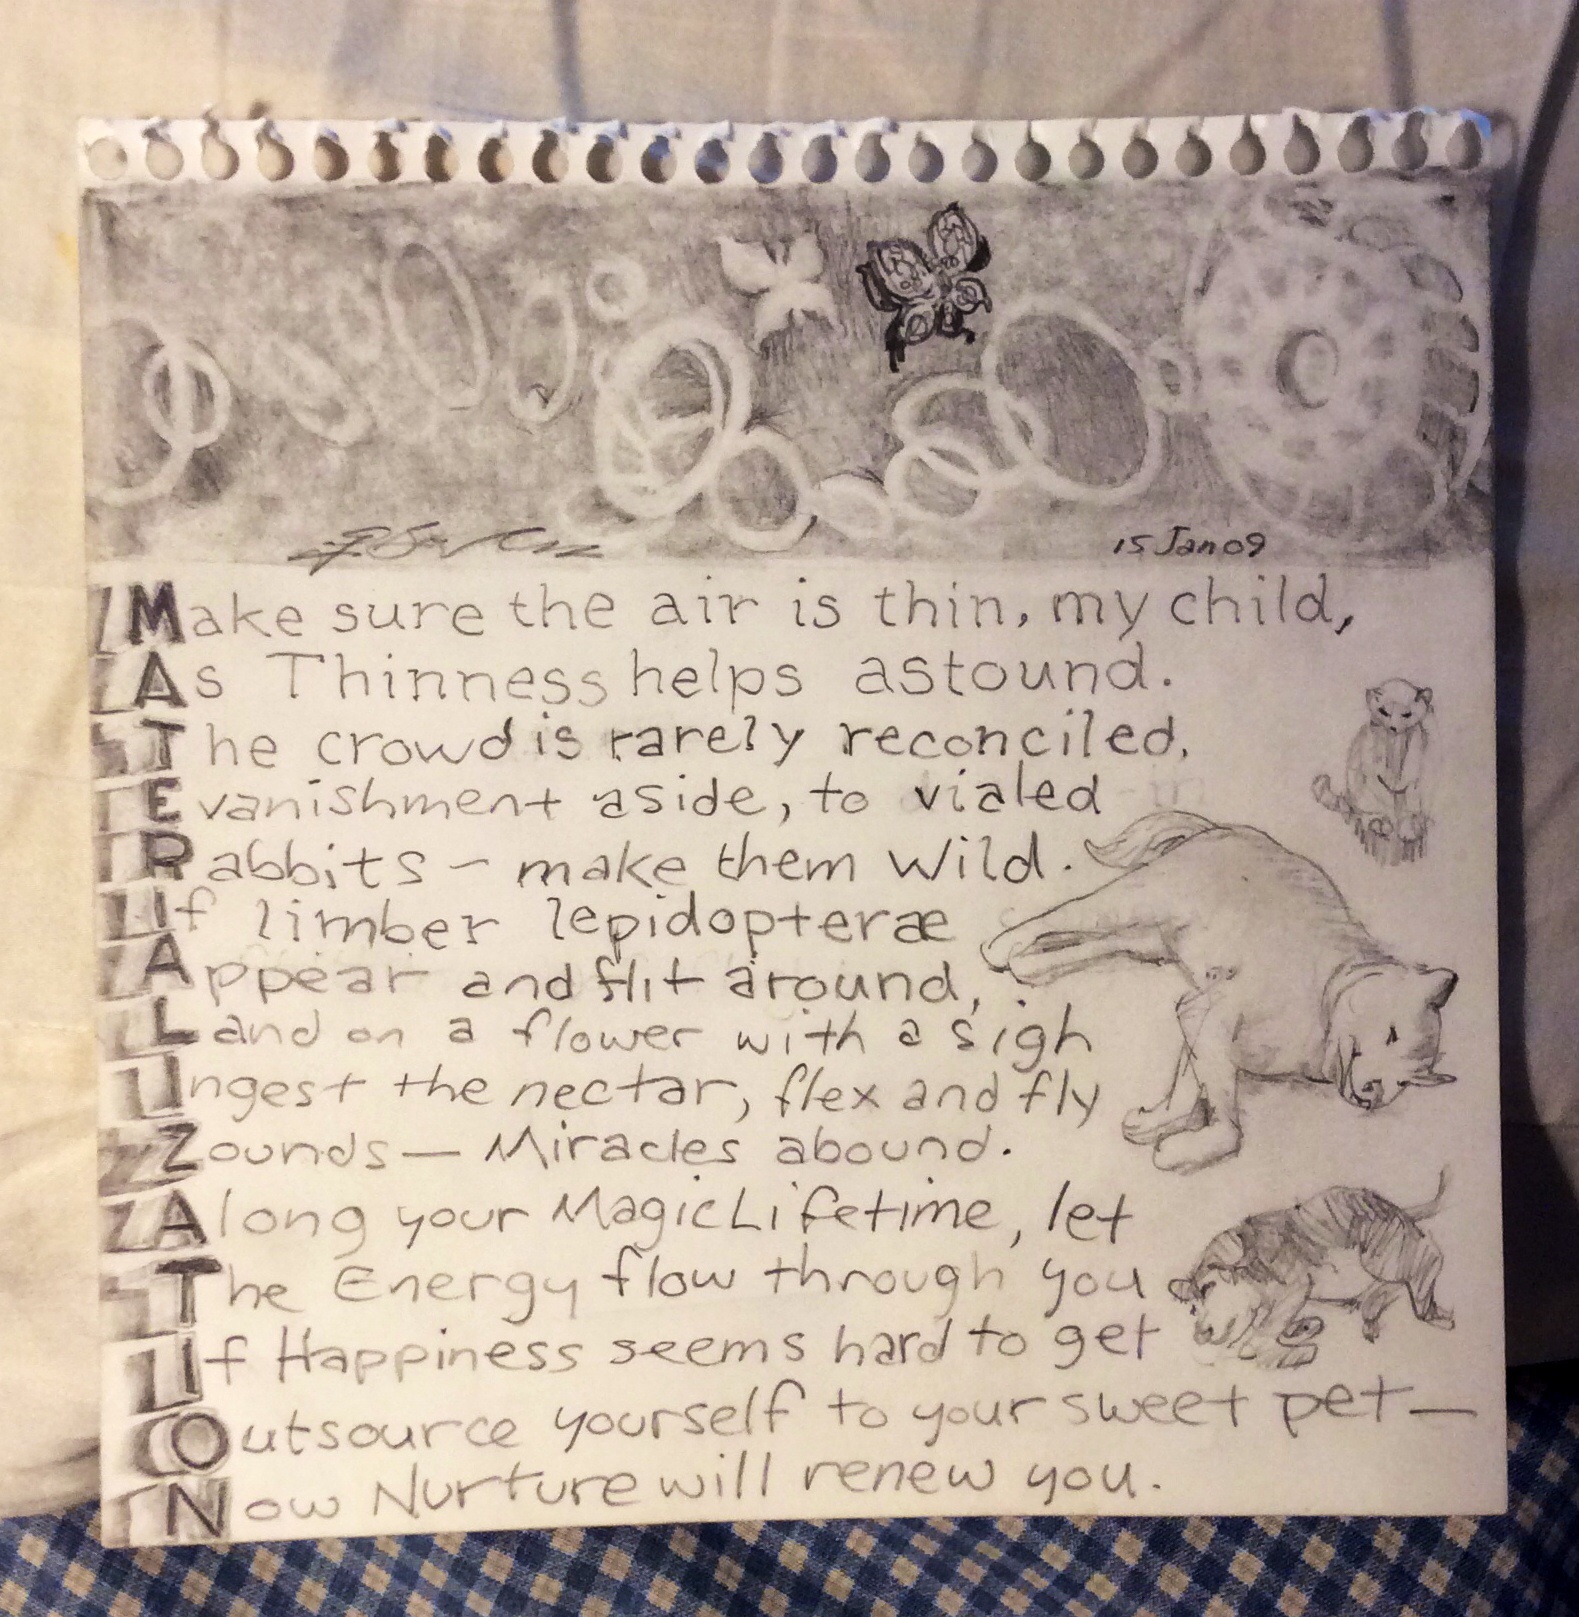 15 Jan 09
Make sure the air is thin, my child,
As Thinness helps astound.
The crowd is rarely reconciled,
Evanishment aside, to vialed
Rabbits – make them wild.
If limber lepidopteræ
Appear and flit around,
Land on a flower with a sigh
Ingest the nectar, flex and fly
Zounds — Miracles abound.
Along your Magic Lifetime, let
The Energy flow through you
If Happiness seems hard to get
Outsource yourself to your sweet pet —
Now Nurture will renew you.